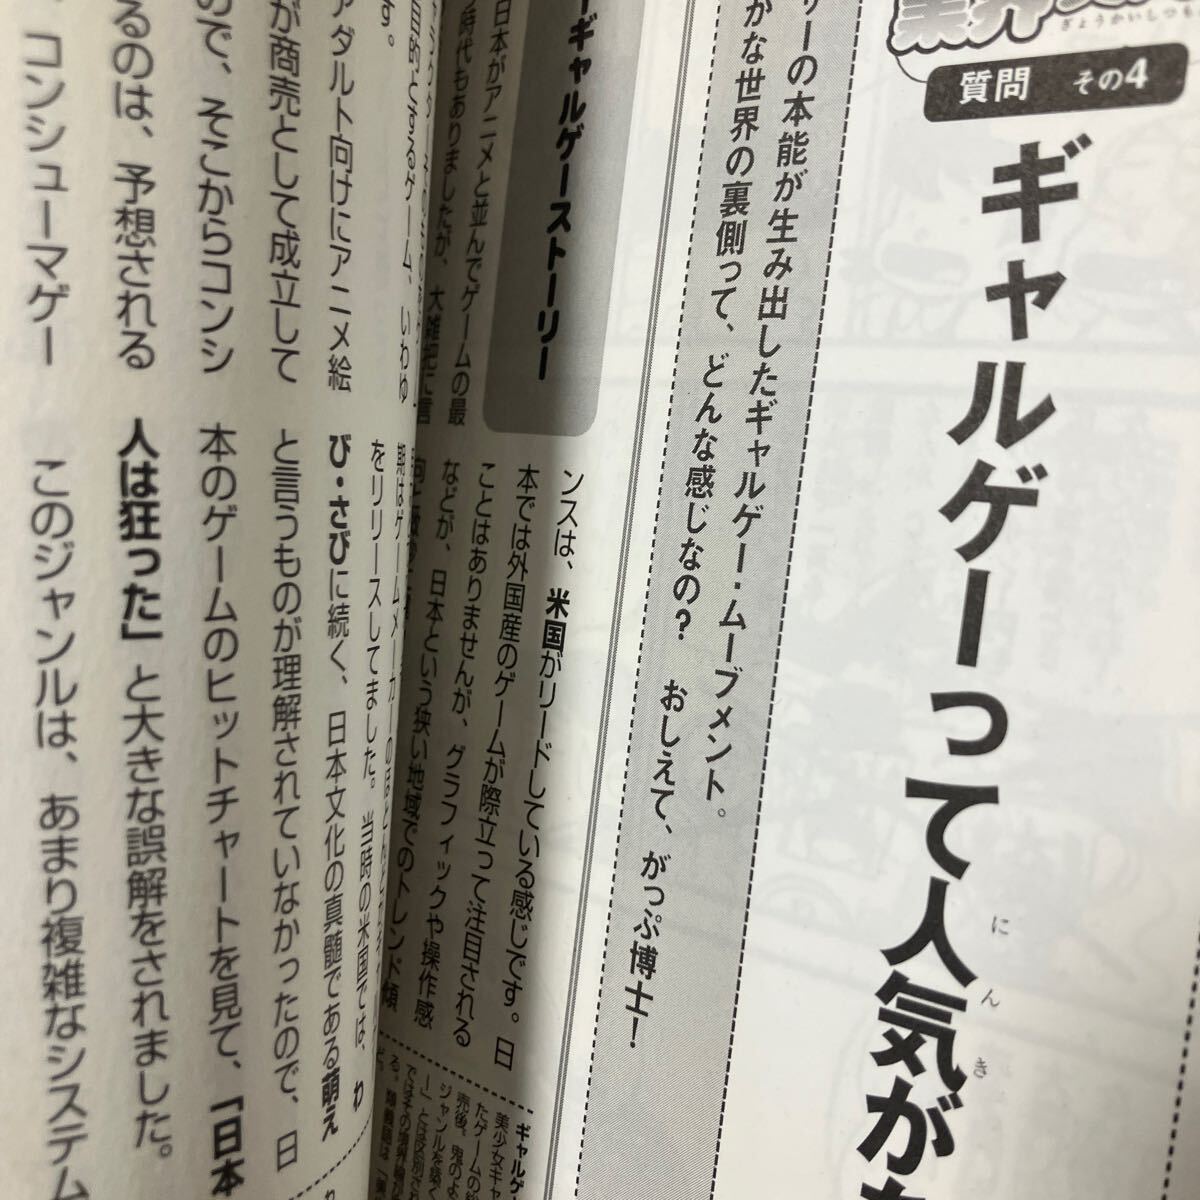 業界
ぎょうかいしつも
質問 その4
ギャルゲーって人気が
にんき
サーの本能が生み出したギャルゲー・ムーブメント。
かな世界の裏側って、どんな感じなの? おしえて、がっぷ博士!
ギャルゲーストーリー
日本がアニメと並んでゲームの最
時代もありましたが、大雑把に言
ンスは、米国がリードしている感じです。日
本では外国産のゲームが際立って注目される
ことはありませんが、グラフィックや操作感
などが、日本という狭い地域でのトレンド傾
ギャルゲ
美少女キャ
たゲームの総
売後、鬼のよ
ジャンルを築く
るゲーム、いわゆ
す。
アダルト向けにアニメ絵
が商売として成立して
ので、そこからコンシ
るのは、予想される
コンシューマゲー
期はゲームメーカーの
をリリースしてました。当時の米国では、わ
び・さびに続く、日本文化の真髄である萌え
と言うものが理解されていなかったので、日
本のゲームのヒットチャートを見て、「日本
人は狂った」と大きな誤解をされました。
このジャンルは、あまり複雑なシステム